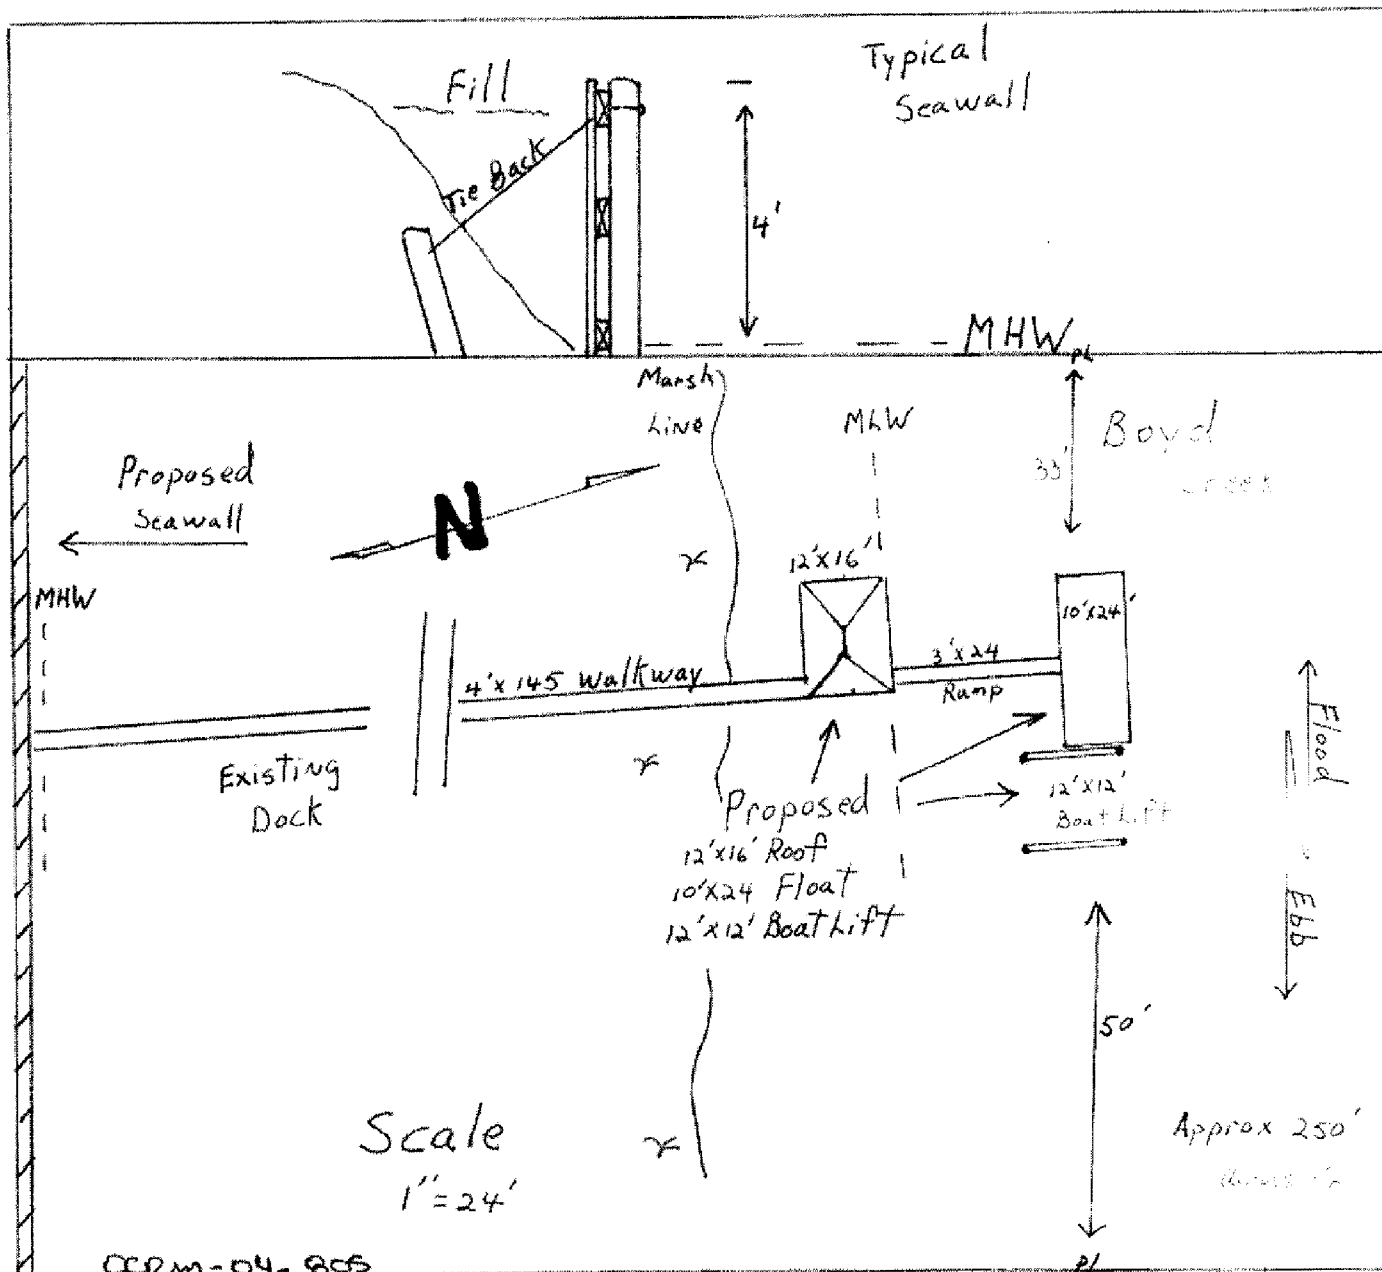 Typical
Seawall
Fill
Tie Back
4'
MHW
PL
Marsh
Line
MLW
Boyd
33'
Proposed
Seawall
N
MHW
12'x16'
10'x24'
4'x145 Walkway
3'x24
Ramp
Existing
Dock
Flood
Proposed
12'x16' Roof
10'x24 Float
12'x12' Boat Lift
12'x12'
Boat Lift
Ebb
50'
Scale
1"=24'
Approx 250'
PL